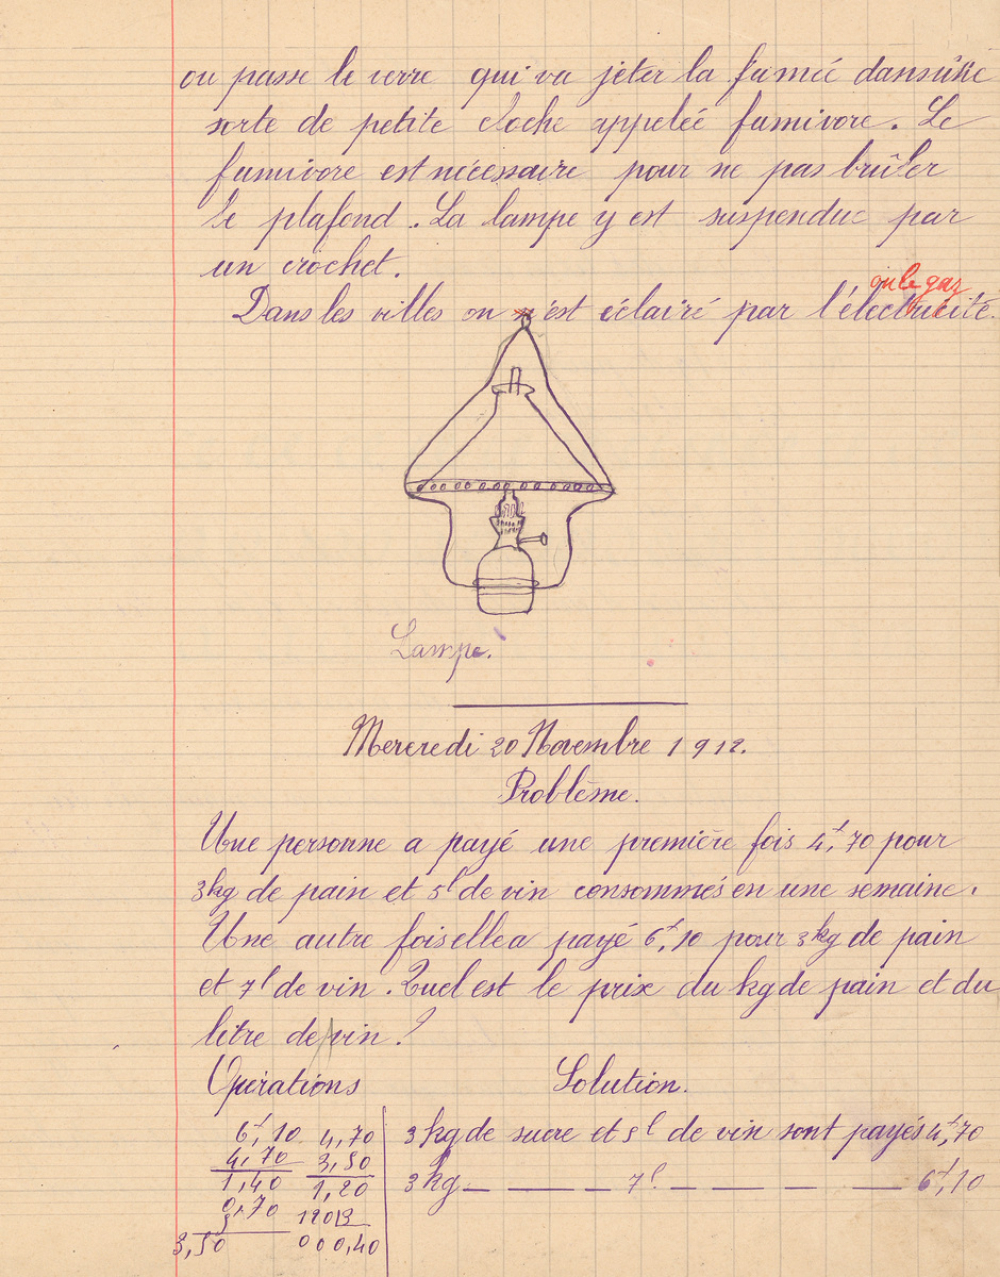 ou passe le verre qui va jeter la fumée dans une
sorte de petite cloche appelée fumivore. Le
fumivore est nécessaire pour ne pas brûler
le plafond. La lampe y est suspendue par
un crochet.
ou le gaz
Dans les villes on est éclairé par l'électricité.
Lampe.
Mercredi 20 Novembre 1912.
Problème.
Une personne a payé une première fois 4f,70 pour
3kg de pain et 5l de vin consommés en une semaine.
Une autre fois elle a payé 6f,10 pour 3kg de pain
et 7l de vin. Quel est le prix du kg de pain et du
litre de vin ?
Opérations Solution.
6f,10 4,70 3kg de sucre et 5l de vin sont payés 4f,70
4,70 3,50
1,40 1,20 3kg — — — 7l — — — — 6f,10
0,70
5 120 3
3,50 000,40